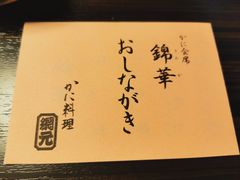 かに会席
錦華
きんか
おしながき
かに料理
網元